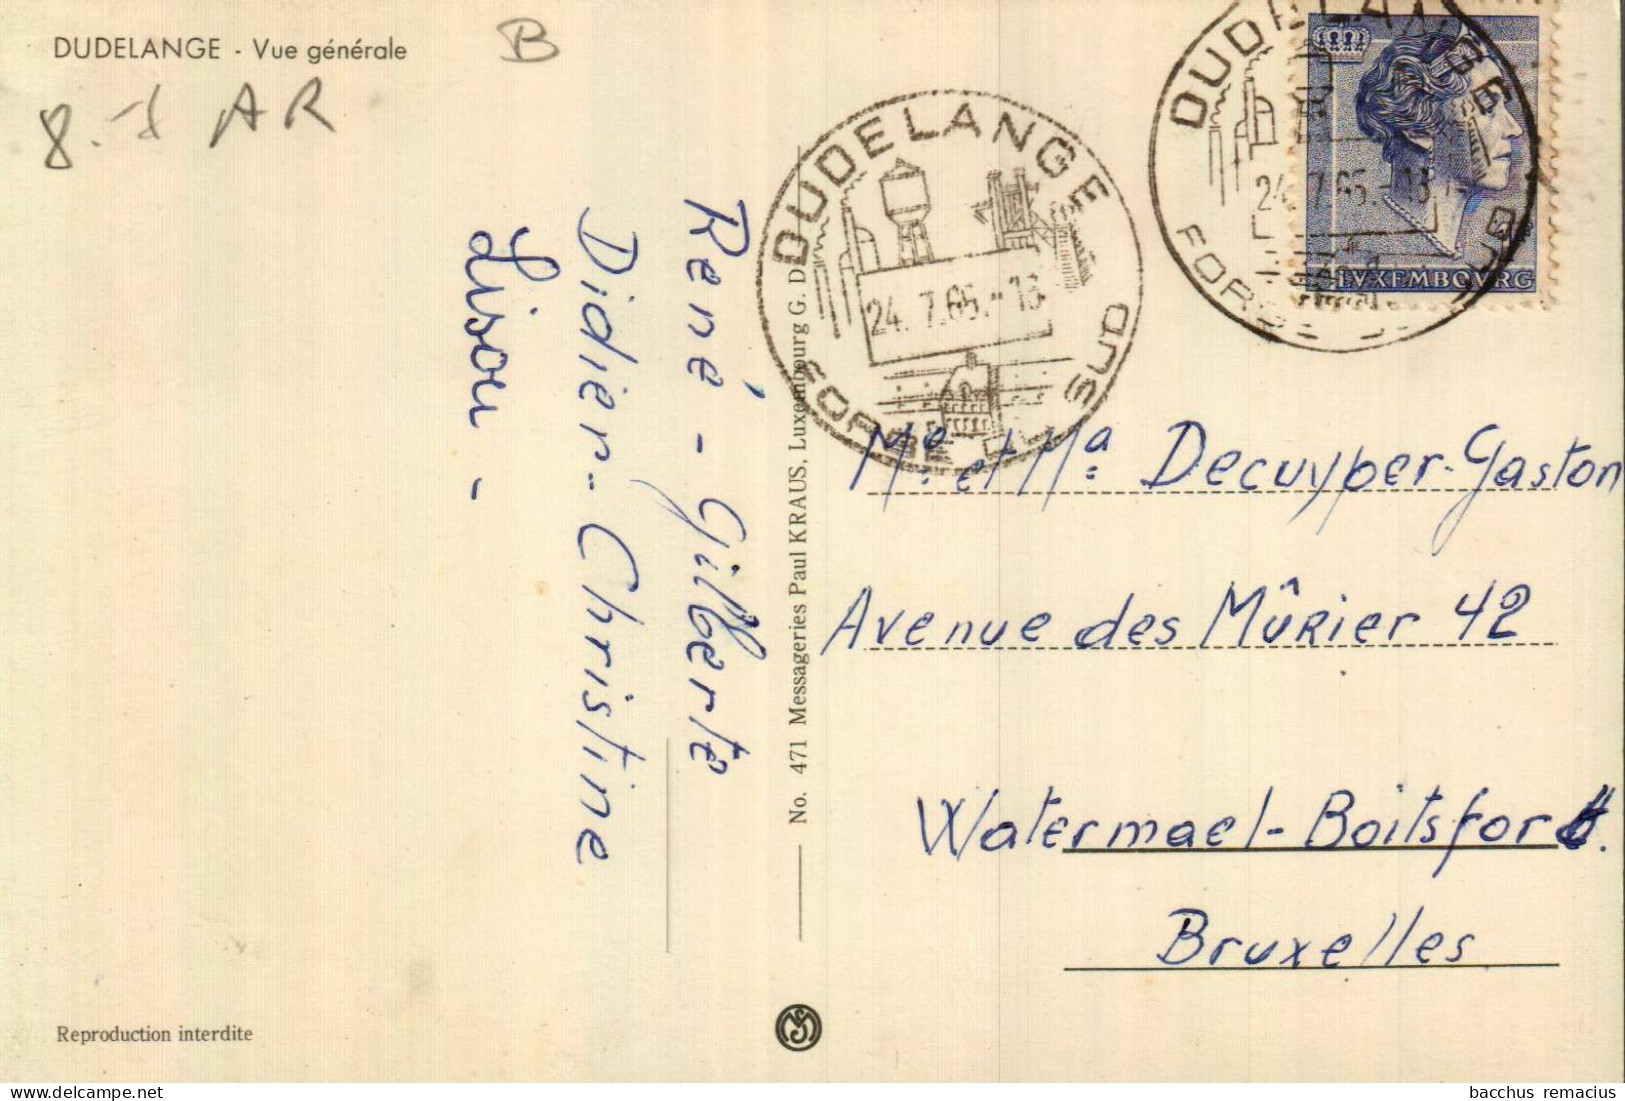 DUDELANGE - Vue générale
B
8. AR
René - Gilberte
Didier - Christine
Lison -
No. 471 Messageries Paul KRAUS, Luxembourg G. D.
DUDELANGE
24. 7. 65. - 18
FORGE SUD
DUDELANGE
24. 7. 65. - 18
FORGE SUD
LVXEMBOVRG
Mr. et Ma Decuyper-Gaston
Avenue des Mûrier 42
Watermael-Boitsfort.
Bruxelles
Reproduction interdite
bacchus remacius